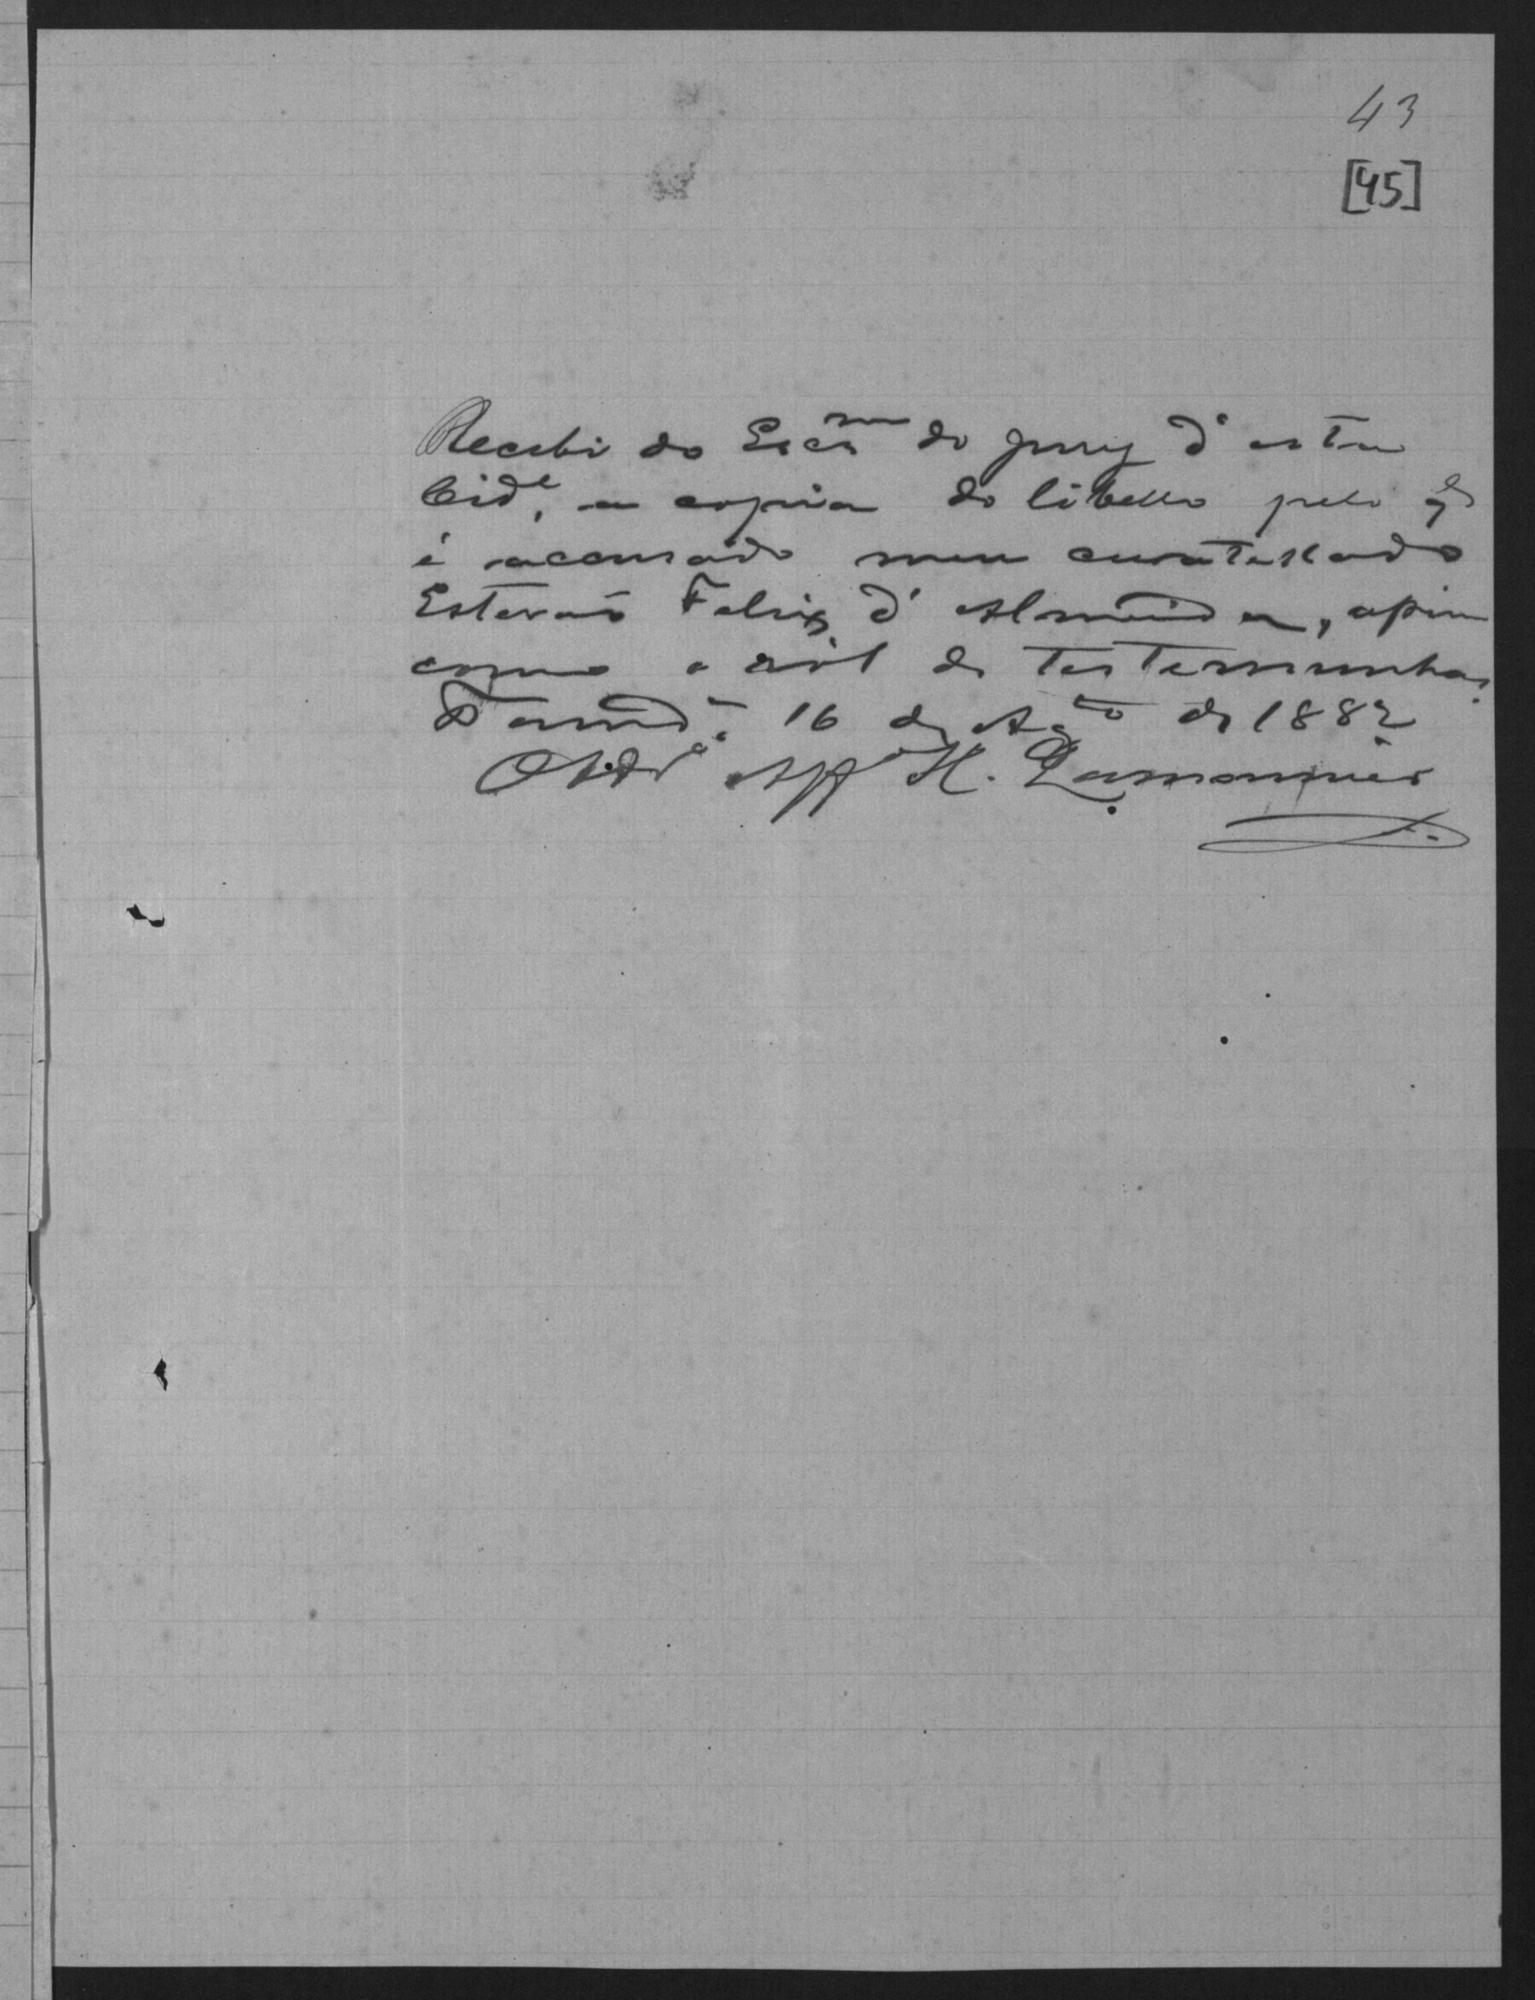 43
[45]
Recebi do Escm do Jury d'esta
Cide, a copia do libello pelo q
é accusado meu curatellado
Estevaõ Felix d'Almeida, assim
como o ról de testemunhas.
16 de Agto de 1882
H. Lamounier